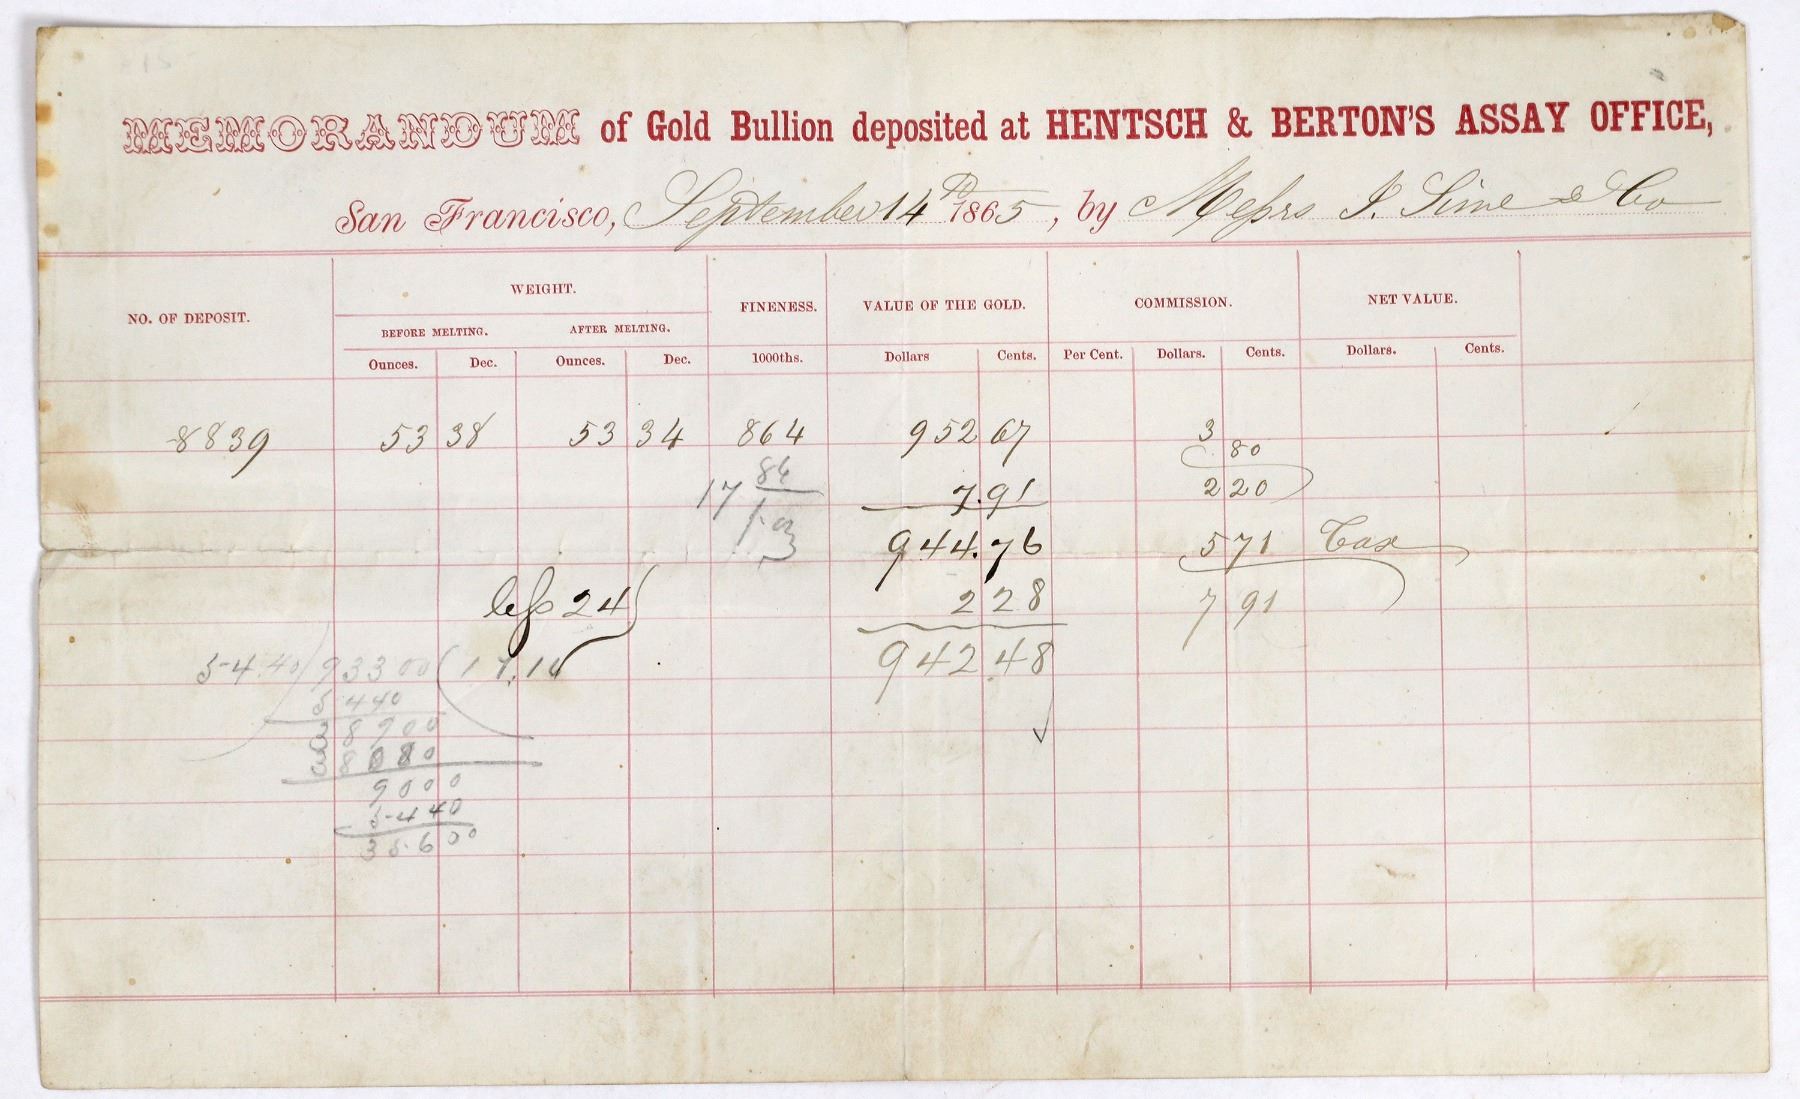 MEMORANDUM of Gold Bullion deposited at HENTSCH & BERTON'S ASSAY OFFICE,
San Francisco, September 14th 1865, by Messrs J. Sime & Co
NO. OF DEPOSIT. WEIGHT. FINENESS. VALUE OF THE GOLD. COMMISSION. NET VALUE.
BEFORE MELTING. AFTER MELTING.
Ounces. Dec. Ounces. Dec. 1000ths. Dollars Cents. Per Cent. Dollars. Cents. Dollars. Cents.
8839 53 38 53 34 864 952 67 3
80
17 86 7.91 2 20
944.76 5 71 Tax
less 24 2 28 7 91
54.40 93300 17.1 942.48
5440
38900
38080
9000
5440
35600